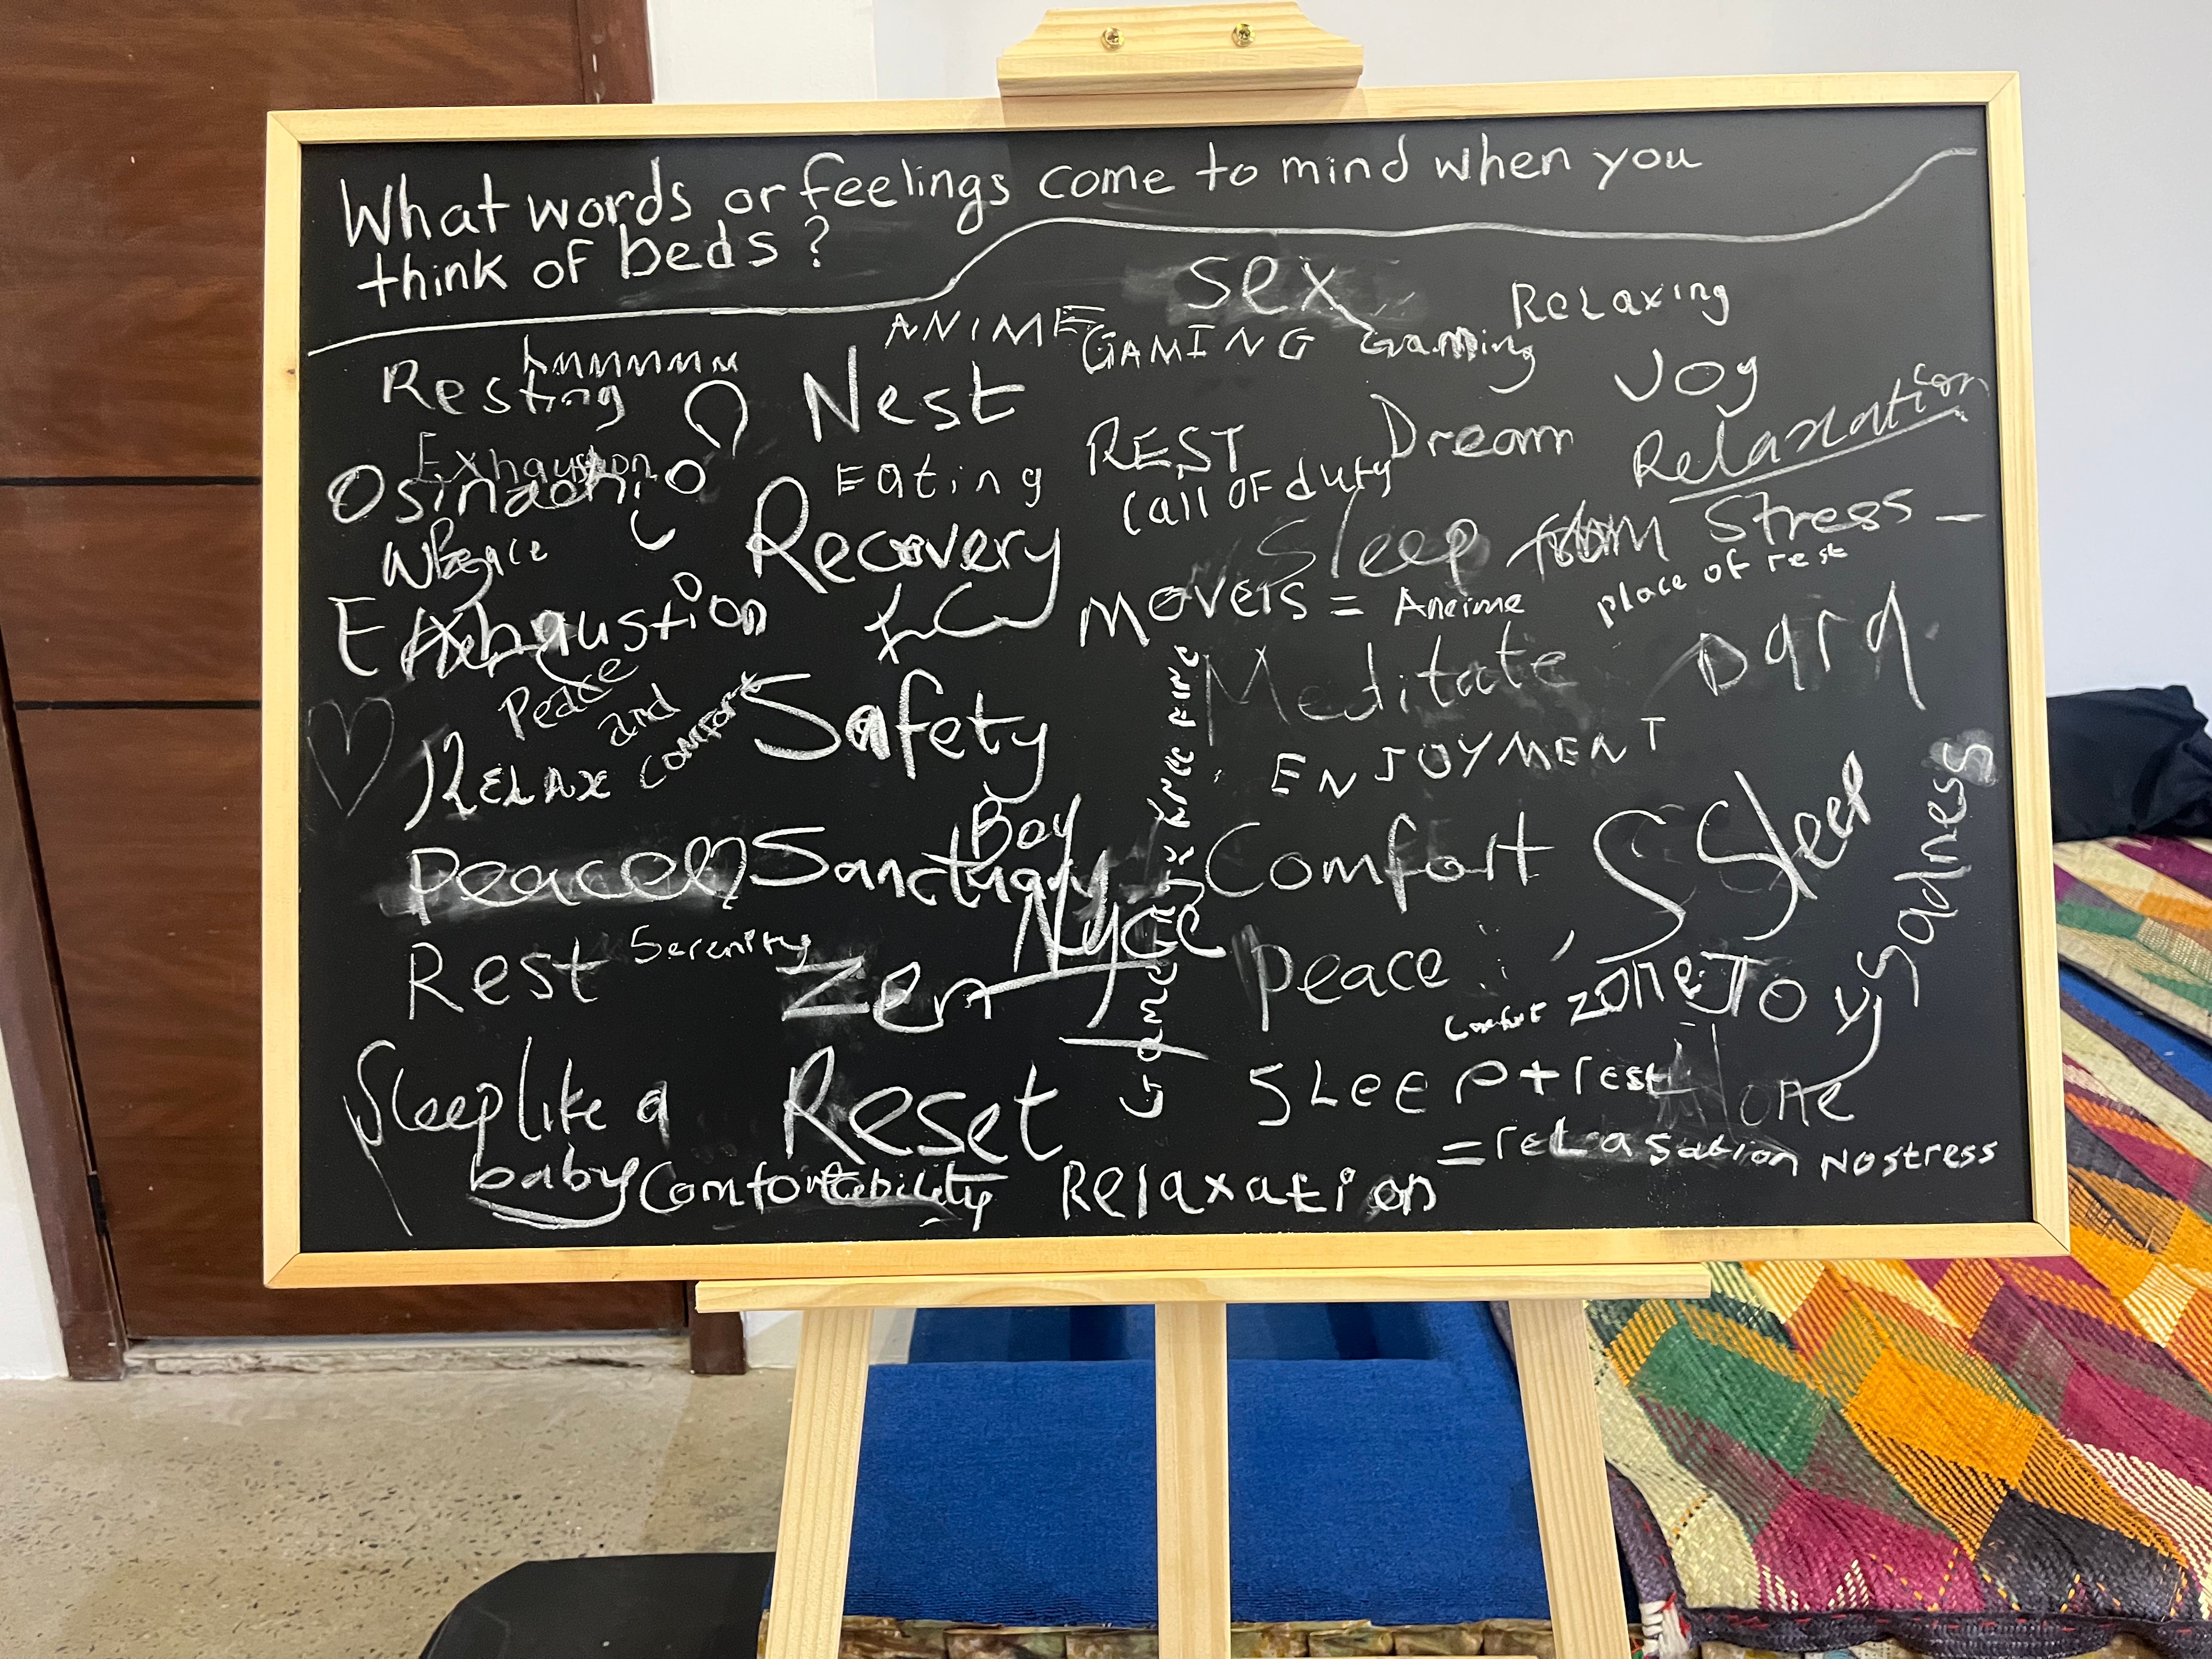 What words or feelings come to mind when you
think of beds?
sex
Relaxing
ANIME
GAMING
Gaming
hmmmmm
Resting
Nest
Joy
Relaxation
REST
Dream
Exhaustion
Osinachi
Eating
Call OF duty
Sleep from Stress
Recovery
place of rest
MOVERS = Aneime
Exhaustion
Peace
and
comfort
Safety
Meditate
Dara
ENJOYMENT
RELAX
Boy
Peace
Sanctuary
Comfort
Sleep
Sadness
Rest
Serenity
Zen
Peace
comfort zone
Toxy
Sleep like a
baby
Reset
SLeep + rest
= relrasation No stress
Alone
Comfortability
Relaxation